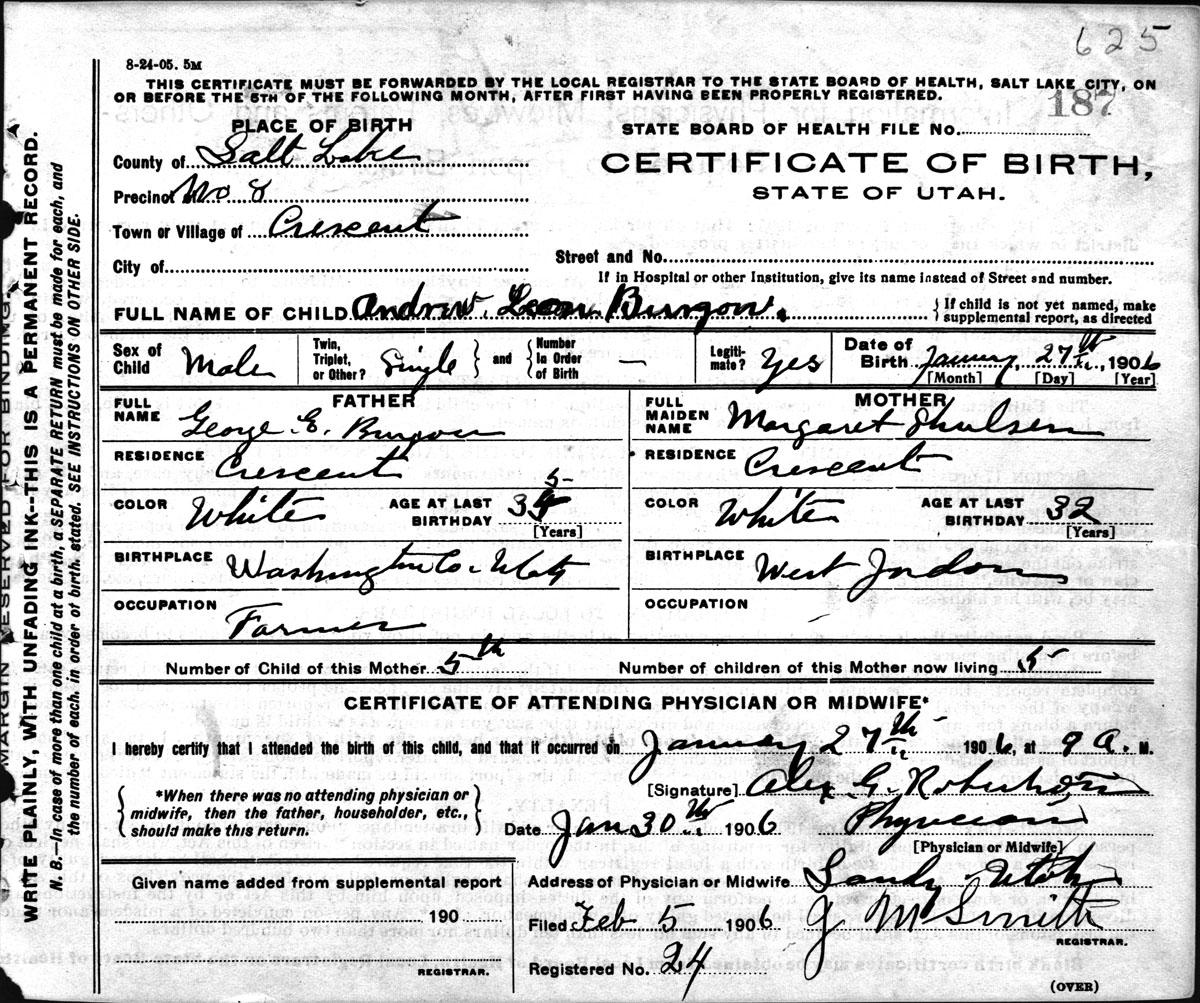 625
8-24-05. 5M
THIS CERTIFICATE MUST BE FORWARDED BY THE LOCAL REGISTRAR TO THE STATE BOARD OF HEALTH, SALT LAKE CITY, ON
OR BEFORE THE 5TH OF THE FOLLOWING MONTH, AFTER FIRST HAVING BEEN PROPERLY REGISTERED.
187
PLACE OF BIRTH
STATE BOARD OF HEALTH FILE No.
County of Salt Lake
CERTIFICATE OF BIRTH,
STATE OF UTAH.
Precinct No 8
Town or Village of Crescent
City of
Street and No.
If in Hospital or other Institution, give its name instead of Street and number.
FULL NAME OF CHILD Andrew Leon Burgon. { If child is not yet named, make supplemental report, as directed
Sex of Child Male Twin, Triplet, or Other? Single } and { Number in Order of Birth — Legiti- mate? Yes Date of Birth January, 27th, 1906
[Month] [Day] [Year]
FATHER
FULL NAME George E. Burgon
RESIDENCE Crescent
COLOR White AGE AT LAST BIRTHDAY 35
[Years]
BIRTHPLACE Washington Co. Utah
OCCUPATION Farmer
MOTHER
FULL MAIDEN NAME Margaret Shulsen
RESIDENCE Crescent
COLOR White AGE AT LAST BIRTHDAY 32
[Years]
BIRTHPLACE West Jordan
OCCUPATION
Number of Child of this Mother 5th Number of children of this Mother now living 5
CERTIFICATE OF ATTENDING PHYSICIAN OR MIDWIFE*
I hereby certify that I attended the birth of this child, and that it occurred on January 27th 1906, at 9 A. M.
{ *When there was no attending physician or midwife, then the father, householder, etc., should make this return. }
[Signature] Alex G. Robertson
Date Jan 30th 1906 Physician
[Physician or Midwife]
Given name added from supplemental report
190
REGISTRAR.
Address of Physician or Midwife Sandy Utah
Filed Feb 5 1906 J M Smith
REGISTRAR.
Registered No. 24
(OVER)
MARGIN RESERVED FOR BINDING.
WRITE PLAINLY, WITH UNFADING INK--THIS IS A PERMANENT RECORD.
N. B.--In case of more than one child at a birth, a SEPARATE RETURN must be made for each, and
the number of each, in order of birth, stated. SEE INSTRUCTIONS ON OTHER SIDE.